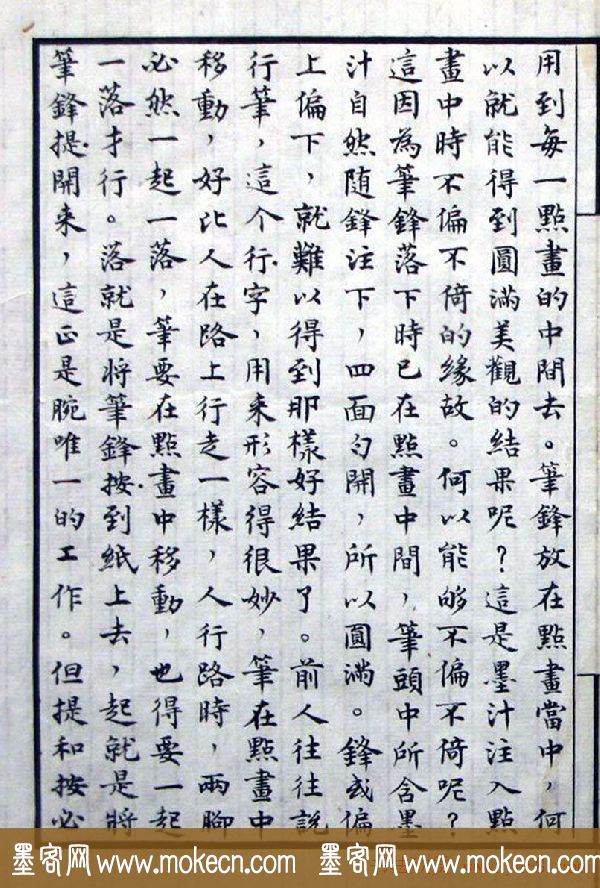 用到每一點畫的中間去。筆鋒放在點畫當中，何
以就能得到圓滿美觀的結果呢？這是墨汁注入點
畫中時不偏不倚的緣故。何以能够不偏不倚呢？
這因為筆鋒落下時已在點畫中間，筆頭中所含墨
汁自然随鋒注下，四面勻開，所以圓滿。鋒或偏
上偏下，就難以得到那樣好結果了。前人往往說
行筆，這个行字，用来形容得很妙，筆在點畫中
移動，好比人在路上行走一樣，人行路時，兩腳
必然一起一落，筆要在點畫中移動，也得要一起
一落才行。落就是將筆鋒按到紙上去，起就是將
筆鋒提開来，這正是腕唯一的工作。但提和按必
墨客网 www.mokecn.com 墨客网 www.mokecn.com